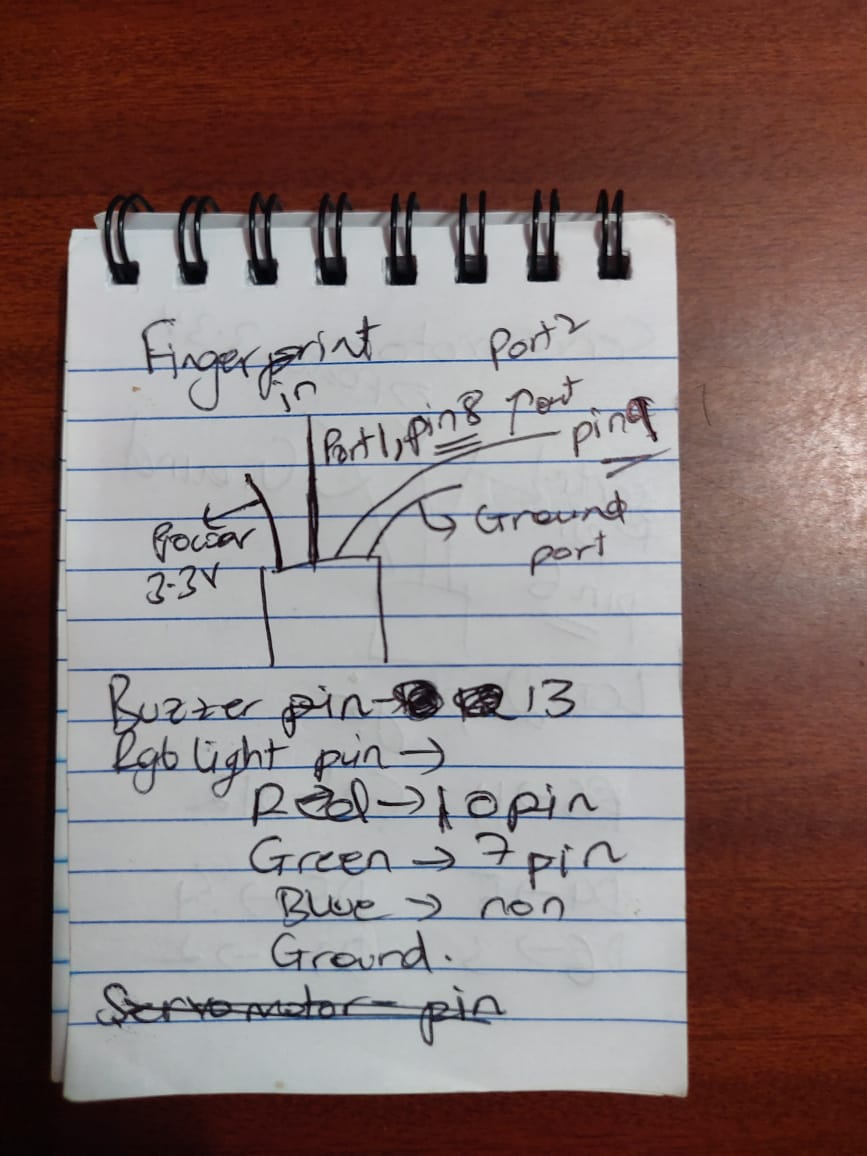 Fingerprint
Port 2
in
Port 1, pin 8 Port
pin 9
Power
3.3V
Ground
port
Buzzer pin → 13
Rgb light pin →
Red → 10 pin
Green → 7 pin
Blue → non
Ground.
Servo motor - pin